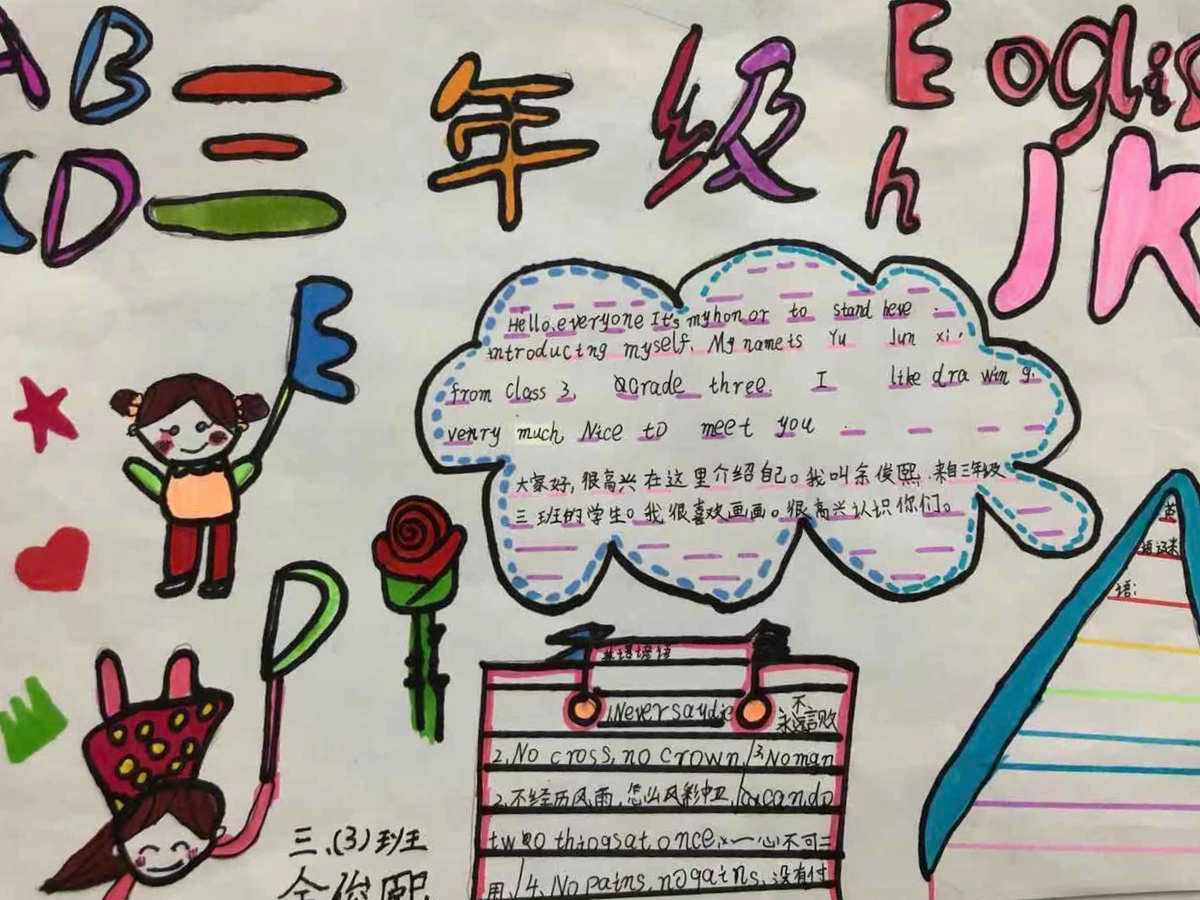 AB 三年级 English
CD JK
E
Hello, everyone It's my honor to stand here.
introducing myself. My name is Yu Jun xi.
from Class 3, Grade three. I like drawing.
venry much Nice to meet you
大家好,很高兴在这里介绍自己。我叫余俊熙.来自三年级
三班的学生。我很喜欢画画。很高兴认识你们。
D
1.Never saydie 不
永远言败
2. No cross, no crown. 3. Noman
2.不经历风雨,怎么 cando
two thingsat.once. 一心不可二
用. 4. No pains, nogains. 没有付
语:
三.(3)班
余俊熙